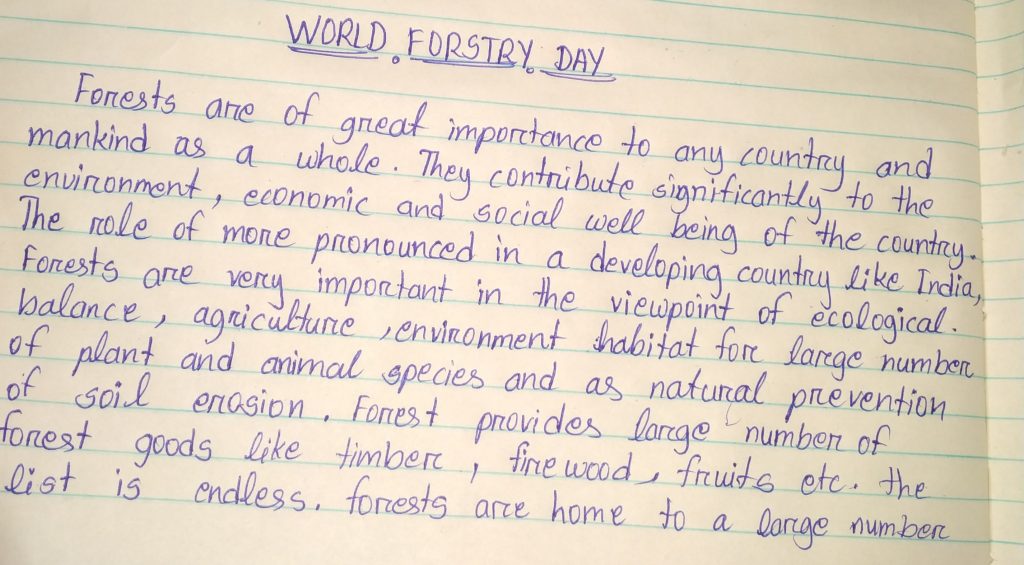 WORLD FORSTRY DAY
Forests are of great importance to any country and
mankind as a whole. They contribute significantly to the
environment, economic and social well being of the country.
The role of more pronounced in a developing country like India,
Forests are very important in the viewpoint of ecological.
balance, agriculture, environment habitat for large number
of plant and animal species and as natural prevention
of soil erosion. Forest provides large number of
forest goods like timber, fire wood, fruits etc. the
list is endless. forests are home to a large number